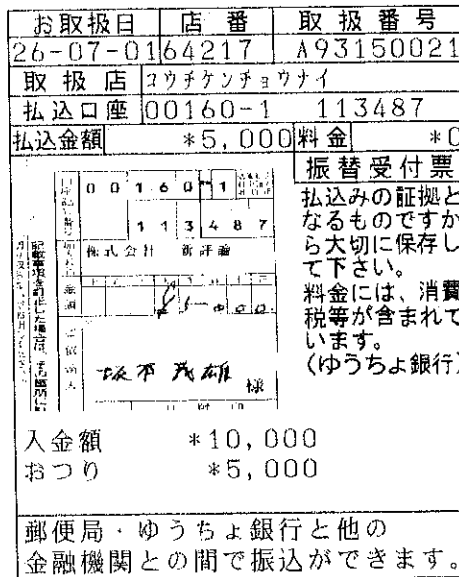 お取扱日 店番 取扱番号
26-07-01 64217 A93150021
取扱店 コウチケンチョウナイ
払込口座 00160-1 113487
払込金額 *5,000 料金 *0
振替受付票
払込みの証拠と
なるものですか
ら大切に保存し
て下さい。
料金には、消費
税等が含まれて
います。
(ゆうちょ銀行)
00160-1
113487
株式会社 新評論
坂本茂雄 様
入金額 *10,000
おつり *5,000
郵便局・ゆうちょ銀行と他の
金融機関との間で振込ができます。